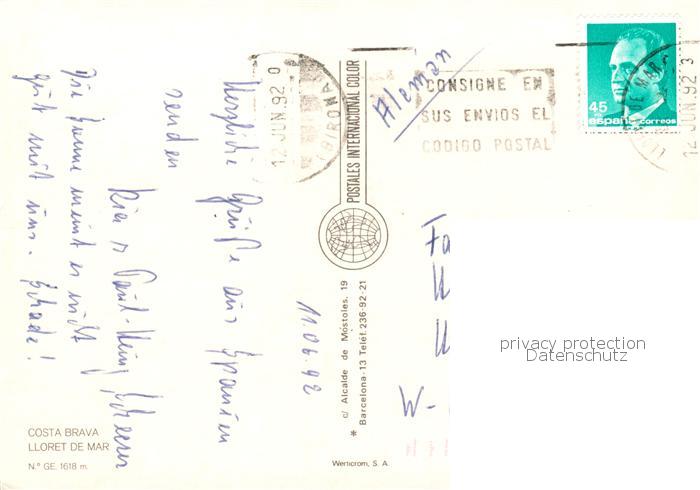 11.06.92
Herzliche Grüße aus Spanien
senden
Die Sonne meint es nicht
gut mit uns. Schade!
COSTA BRAVA
LLORET DE MAR
N.º GE. 1618 m.
POSTALES INTERNACIONAL COLOR
c/ Alcalde de Móstoles, 19
* Barcelona-13 Teléf. 236-92-21
Werticrom, S. A.
12 JUN. 92 0
(GIRONA)
Aleman
CONSIGNE EN
SUS ENVIOS EL
CODIGO POSTAL
45
españa correos
12 JUN. 92 3
Fa
W-
privacy protection
Datenschutz